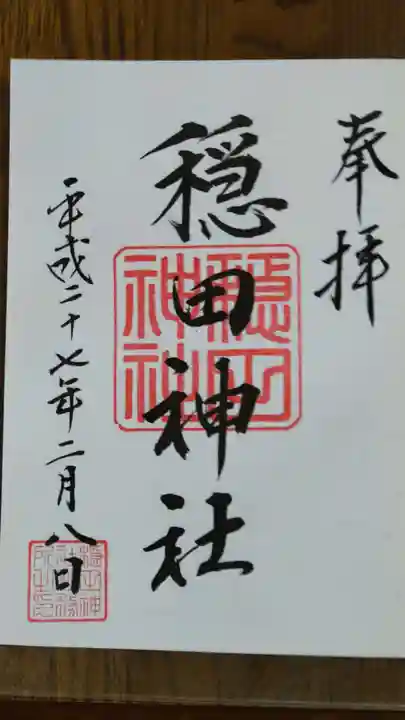 奉拝
穏田神社
平成二十七年二月八日